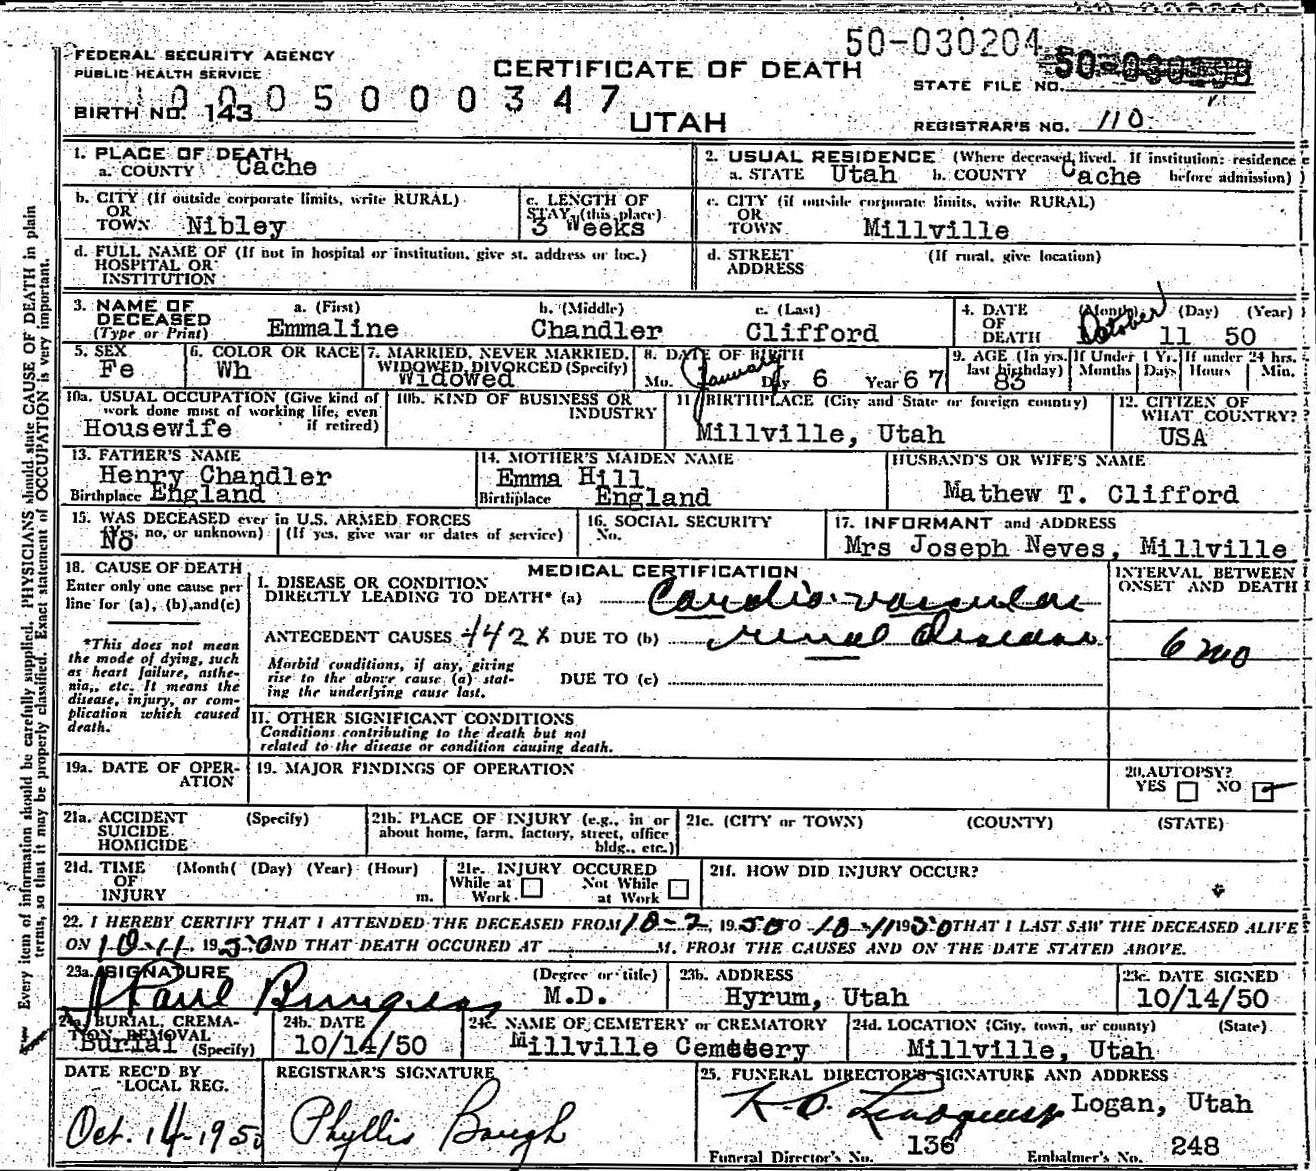 50-030204
FEDERAL SECURITY AGENCY
PUBLIC HEALTH SERVICE
CERTIFICATE OF DEATH
STATE FILE NO.
0005000347
BIRTH NO. 143
UTAH
REGISTRAR'S NO. 110
1. PLACE OF DEATH
a. COUNTY Cache
2. USUAL RESIDENCE (Where deceased lived. If institution: residence before admission)
a. STATE Utah b. COUNTY Cache
b. CITY (If outside corporate limits, write RURAL)
OR
TOWN Nibley
c. LENGTH OF
STAY (this place)
3 Weeks
c. CITY (if outside corporate limits, write RURAL)
OR
TOWN Millville
d. FULL NAME OF (If not in hospital or institution, give st. address or loc.)
HOSPITAL OR
INSTITUTION
d. STREET (If rural, give location)
ADDRESS
3. NAME OF
DECEASED
(Type or Print)
a. (First) b. (Middle) c. (Last)
Emmaline Chandler Clifford
4. DATE
OF
DEATH
(Month) (Day) (Year)
October 11 50
5. SEX
Fe
6. COLOR OR RACE
Wh
7. MARRIED, NEVER MARRIED,
WIDOWED, DIVORCED (Specify)
Widowed
8. DATE OF BIRTH
Mo. January Day 6 Year 67
9. AGE (In yrs.
last birthday)
83
If Under 1 Yr.
Months Days
If under 24 hrs.
Hours Min.
10a. USUAL OCCUPATION (Give kind of
work done most of working life, even
if retired)
Housewife
10b. KIND OF BUSINESS OR
INDUSTRY
11. BIRTHPLACE (City and State or foreign country)
Millville, Utah
12. CITIZEN OF
WHAT COUNTRY?
USA
13. FATHER'S NAME
Henry Chandler
Birthplace England
14. MOTHER'S MAIDEN NAME
Emma Hill
Birthplace England
HUSBAND'S OR WIFE'S NAME
Mathew T. Clifford
15. WAS DECEASED ever in U.S. ARMED FORCES
(Yes, no, or unknown) (If yes, give war or dates of service)
No
16. SOCIAL SECURITY
No.
17. INFORMANT and ADDRESS
Mrs Joseph Neves, Millville
18. CAUSE OF DEATH
Enter only one cause per
line for (a), (b), and (c)
*This does not mean
the mode of dying, such
as heart failure, asthe-
nia, etc. It means the
disease, injury, or com-
plication which caused
death.
MEDICAL CERTIFICATION
I. DISEASE OR CONDITION
DIRECTLY LEADING TO DEATH* (a) Cardio-vascular
ANTECEDENT CAUSES 442x DUE TO (b) renal disease
Morbid conditions, if any, giving
rise to the above cause (a) stat-
ing the underlying cause last.
DUE TO (c)
II. OTHER SIGNIFICANT CONDITIONS
Conditions contributing to the death but not
related to the disease or condition causing death.
INTERVAL BETWEEN
ONSET AND DEATH
6 mo
19a. DATE OF OPER-
ATION
19. MAJOR FINDINGS OF OPERATION
20. AUTOPSY?
YES NO
21a. ACCIDENT (Specify)
SUICIDE
HOMICIDE
21b. PLACE OF INJURY (e.g., in or
about home, farm, factory, street, office
bldg., etc.)
21c. (CITY or TOWN) (COUNTY) (STATE)
21d. TIME (Month( (Day) (Year) (Hour)
OF
INJURY m.
21e. INJURY OCCURED
While at Work
Not While at Work
21f. HOW DID INJURY OCCUR?
22. I HEREBY CERTIFY THAT I ATTENDED THE DECEASED FROM 10-2, 1950 TO 10-11 1950 THAT I LAST SAW THE DECEASED ALIVE
ON 10-11, 1950 AND THAT DEATH OCCURED AT M. FROM THE CAUSES AND ON THE DATE STATED ABOVE.
23a. SIGNATURE (Degree or title)
J Paul Burgess M.D.
23b. ADDRESS
Hyrum, Utah
23c. DATE SIGNED
10/14/50
24a. BURIAL CREMA-
TION REMOVAL
Burial (Specify)
24b. DATE
10/14/50
24c. NAME OF CEMETERY or CREMATORY
Millville Cemetery
24d. LOCATION (City, town, or county) (State)
Millville, Utah
DATE REC'D BY
LOCAL REG.
Oct. 14-1950
REGISTRAR'S SIGNATURE
Phyllis Baugh
25. FUNERAL DIRECTOR'S SIGNATURE AND ADDRESS
Logan, Utah
Funeral Director's No. 136 Embalmer's No. 248
Every item of information should be carefully supplied. PHYSICIANS should state CAUSE OF DEATH in plain
terms, so that it may be properly classified. Exact statement of OCCUPATION is very important.